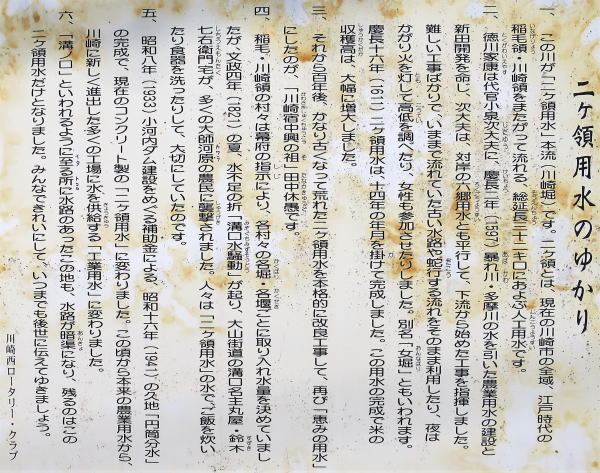 二ヶ領用水のゆかり
一、この川が「二ヶ領用水」本流（川崎堀）です。二ヶ領とは、現在の川崎市の全域、江戸時代の
稲毛領・川崎領をまたがって流れる、総延長三十二キロにおよぶ人工用水です。
二、徳川家康は代官小泉次大夫に、慶長二年（1597）暴れ川・多摩川の水を引いた農業用水の建設と
新田開発を命じ、次大夫は、対岸の六郷用水とも平行して、下流から始めた工事を指揮しました。
難しい工事ばかりで、いままで流れていた古い水路や蛇行する流れをそのまま利用したり、夜は
かがり火を灯して高低を調べたり、女性も参加させたりしました。別名「女堀」ともいわれます。
慶長十六年（1611）二ヶ領用水は、十四年の年月を掛けて完成しました。この用水の完成で米の
収穫高は、大幅に増大しました。
三、それから百年後、かなり古くなって荒れた二ヶ領用水を本格的に改良工事して、再び「恵みの用水」
にしたのが、「川崎宿中興の祖」田中休愚です。
四、稲毛・川崎領の村々は幕府の指示により、各村々の各堀・各堰ごとに取り入れ水量を決めていまし
たが、文政四年（1821）の夏、水不足の折「溝口水騒動」が起り、大山街道の溝口名主丸屋・鈴木
七右衛門宅が、多くの大師河原の農民に襲撃されました。人々は「二ヶ領用水」の水で、ご飯を炊い
たり食器を洗ったりして、大切にしていたのです。
五、昭和八年（1933）小河内ダム建設をめぐる補助金による、昭和十六年（1941）の久地「円筒分水」
の完成で、現在のコンクリート製の「二ヶ領用水」に変わりました。この頃から本来の農業用水から、
川崎に新しく進出した多くの工場に水を供給する「工業用水」に変わりました。
六、「溝ノ口」といわれるように至る所に水路のあったこの地も、水路が暗渠になり、残るのはこの
二ヶ領用水だけとなりました。みんなできれいにして、いつまでも後世に伝えてゆきましょう。
川崎西ロータリー・クラブ